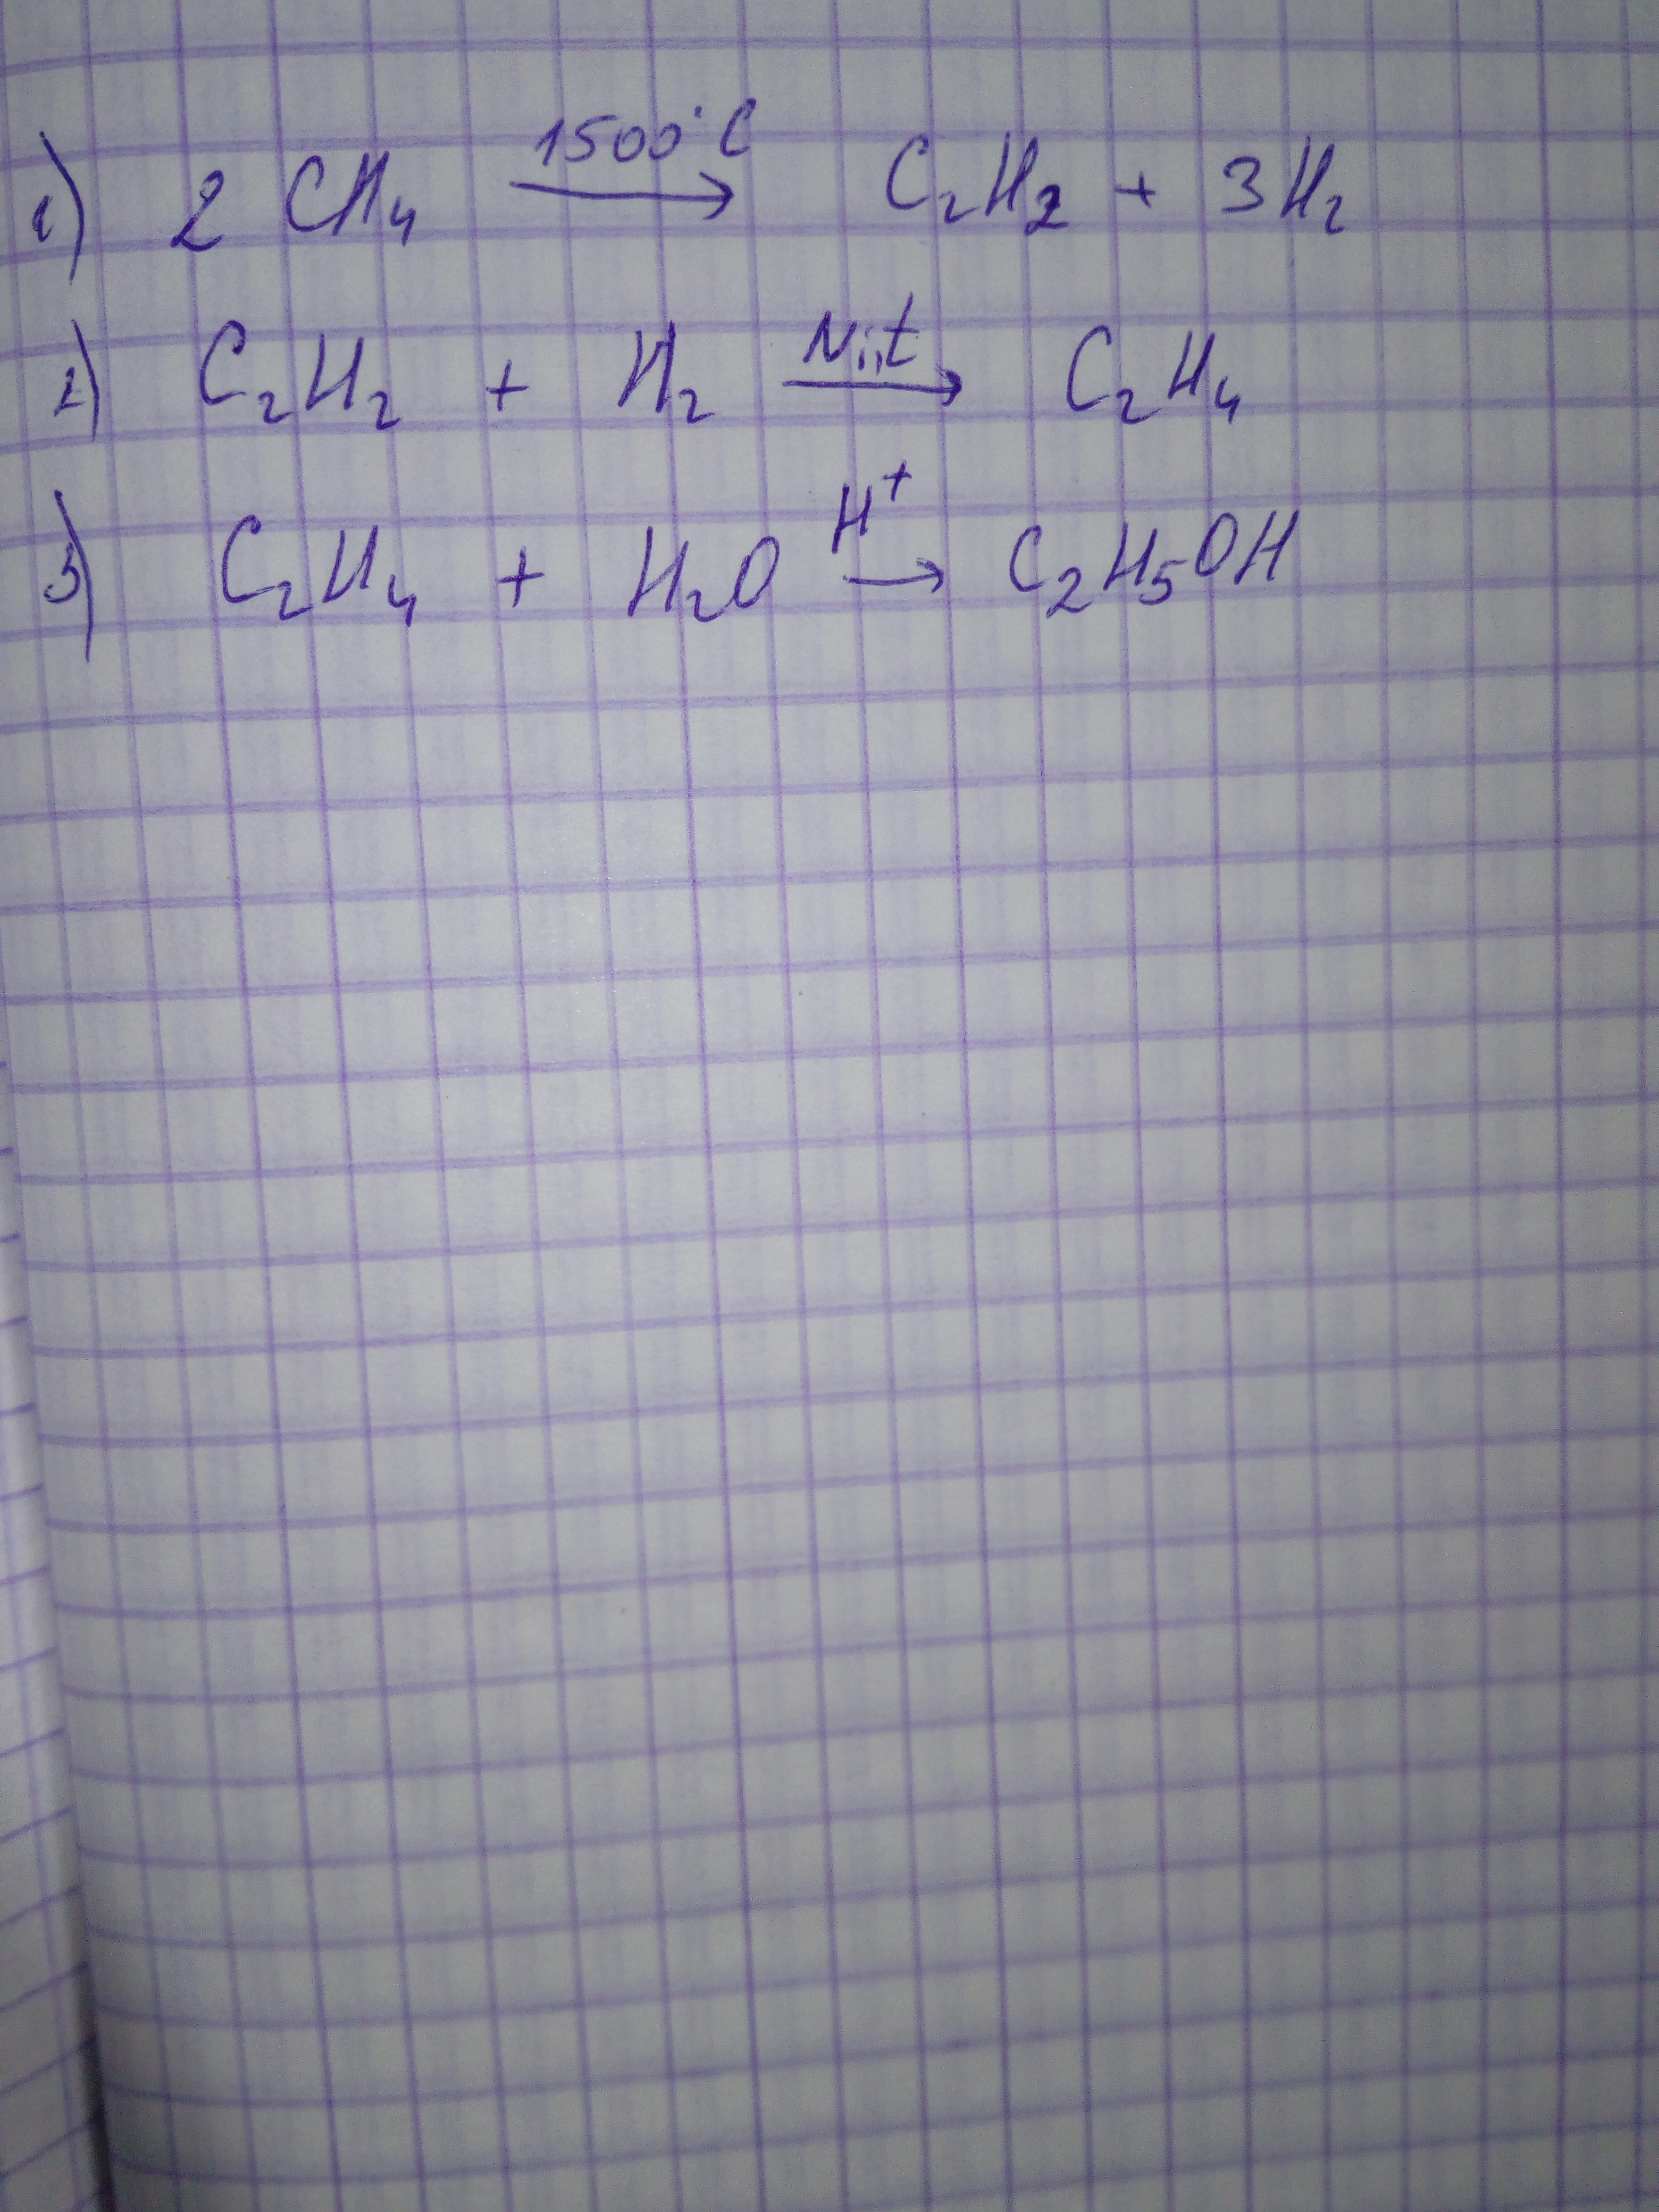 1) 2 CH₄ 1500°C → C₂H₂ + 3H₂
2) C₂H₂ + H₂ Ni, t → C₂H₄
3) C₂H₄ + H₂O H⁺ → C₂H₅OH